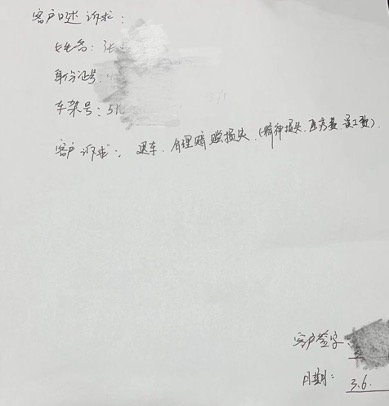 客户口述诉求:
姓名: 张
身份证号:
车架号:
客户诉求: 退车、合理赔赔损失(精神损失、医疗费、误工费)
客户签字:
日期: 3.6.